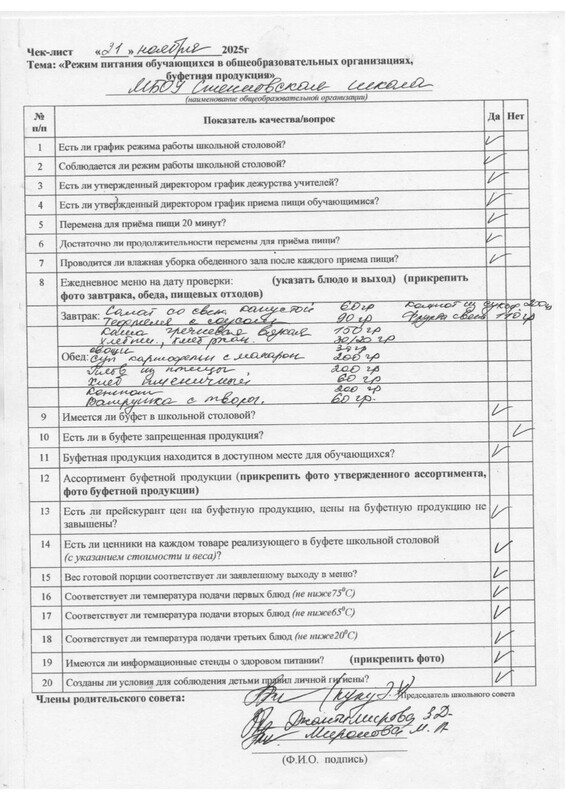 Чек-лист «21» ноября 2025г
Тема: «Режим питания обучающихся в общеобразовательных организациях,
буфетная продукция»
МБОУ школа
(наименование общеобразовательной организации)
№ п/п Показатель качества/вопрос Да Нет
1 Есть ли график режима работы школьной столовой? ✓
2 Соблюдается ли режим работы школьной столовой? ✓
3 Есть ли утвержденный директором график дежурства учителей? ✓
4 Есть ли утвержденный директором график приема пищи обучающимися? ✓
5 Перемена для приёма пищи 20 минут? ✓
6 Достаточно ли продолжительности перемены для приёма пищи? ✓
7 Проводится ли влажная уборка обеденного зала после каждого приема пищи? ✓
8 Ежедневное меню на дату проверки: (указать блюдо и выход) (прикрепить
фото завтрака, обеда, пищевых отходов)
Завтрак: Салат со свеж капустой 60 гр Компот из 200гр
с соусом 90 гр
Каша гречневая вязкая 150 гр
Хлеб пш., хлеб ржан. 30/20 гр
овощи 30 гр
Обед: Суп картофельн с макарон 200 гр
Плов из птицы 200 гр
Хлеб пшеничный 60 гр
Компот 200 гр
Ватрушка с творог. 60 гр.
9 Имеется ли буфет в школьной столовой? ✓
10 Есть ли в буфете запрещенная продукция? ✓
11 Буфетная продукция находится в доступном месте для обучающихся? ✓
12 Ассортимент буфетной продукции (прикрепить фото утвержденного ассортимента,
фото буфетной продукции)
13 Есть ли прейскурант цен на буфетную продукцию, цены на буфетную продукцию не
завышены? ✓
14 Есть ли ценники на каждом товаре реализующего в буфете школьной столовой
(с указанием стоимости и веса)? ✓
15 Вес готовой порции соответствует ли заявленному выходу в меню? ✓
16 Соответствует ли температура подачи первых блюд (не ниже75⁰С) ✓
17 Соответствует ли температура подачи вторых блюд (не ниже65⁰С) ✓
18 Соответствует ли температура подачи третьих блюд (не ниже20⁰С) ✓
19 Имеются ли информационные стенды о здоровом питании? (прикрепить фото) ✓
20 Созданы ли условия для соблюдения детьми правил личной гигиены? ✓
Члены родительского совета: Председатель школьного совета
З.Д.
Миронова М. А
(Ф.И.О. подпись)